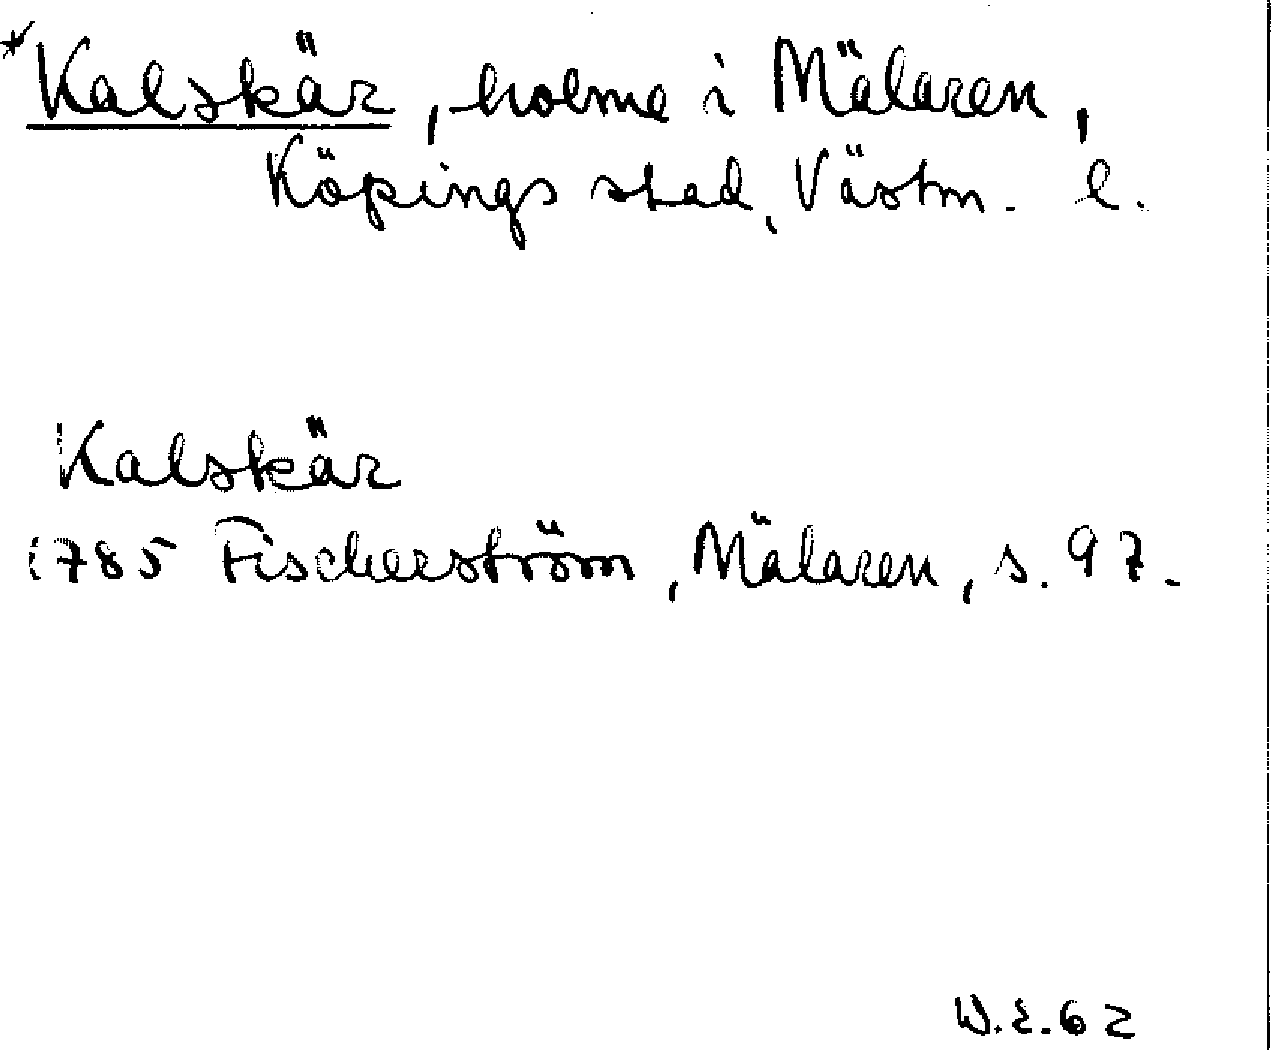 *Kalskär, holme i Mälaren,
Köpings stad, Västm. l.
Kalskär
1785 Fischerström, Mälaren, s. 97.
W.E.62